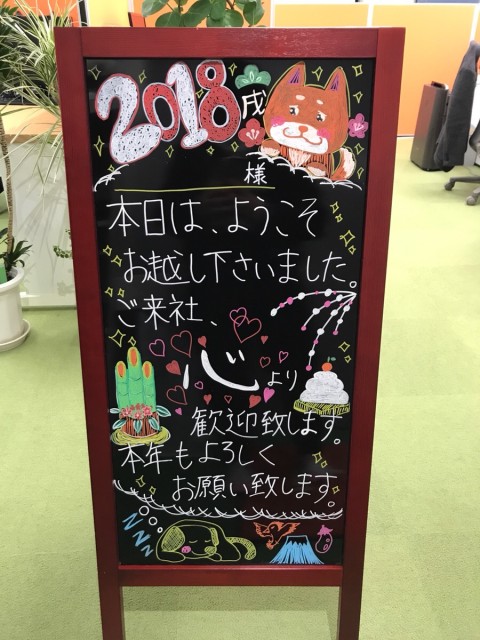 2018 戌
様
本日は、ようこそ
お越し下さいました。
ご来社、
心より
歓迎致します。
本年もよろしく
お願い致します。
ZZZ